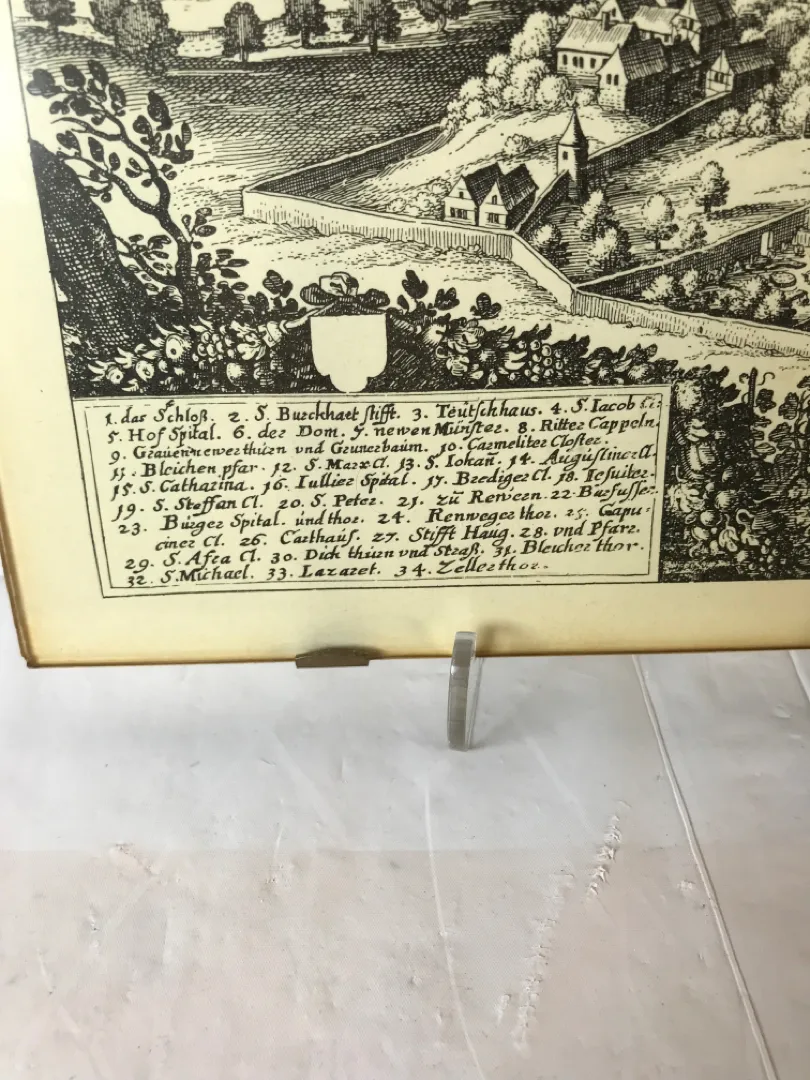 1. das Schloß. 2. S. Burckhart stifft. 3. Teütschhaus. 4. S. Iacob
5. Hof Spital. 6. der Dom. 7. newen Münster. 8. Ritter Cappeln.
9. Graueneweerthurn vnd Grunerbaum. 10. Carmeliter Closter.
11. Bleichen pfar. 12. S. Marx Cl. 13. S. Iohañ. 14. Augustiner Cl.
15. S. Catharina. 16. Iullier Spital. 17. Brediger Cl. 18. Iesuiter.
19. S. Steffan Cl. 20. S. Peter. 21. zu Rewern. 22. Barfusser.
23. Burger Spital. und thor. 24. Rennweger thor. 25. Capu:
ciner Cl. 26. Carthaus. 27. Stifft Haug. 28. vnd Pfarr.
29. S. Afra Cl. 30. Dick thurn vnd Straß. 31. Bleicher thor.
32. S. Michael. 33. Lazaret. 34. Zeller thor.